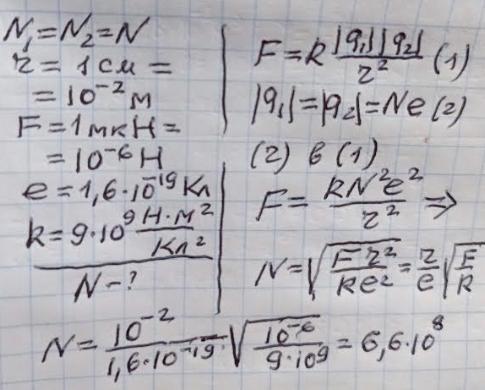 N₁=N₂=N
r = 1 см =
= 10⁻² м
F = 1 мкН =
= 10⁻⁶ Н
e = 1,6·10⁻¹⁹ Кл
k = 9·10⁹ Н·м²/Кл²
N - ?
F = k |q₁||q₂|/r² (1)
|q₁|=|q₂|=Ne (2)
(2) в (1)
F = kN²e²/r² ⇒
N = √(Fr²/ke²) = r/e √(F/k)
N = 10⁻²/1,6·10⁻¹⁹ · √(10⁻⁶/9·10⁹) = 6,6·10⁸